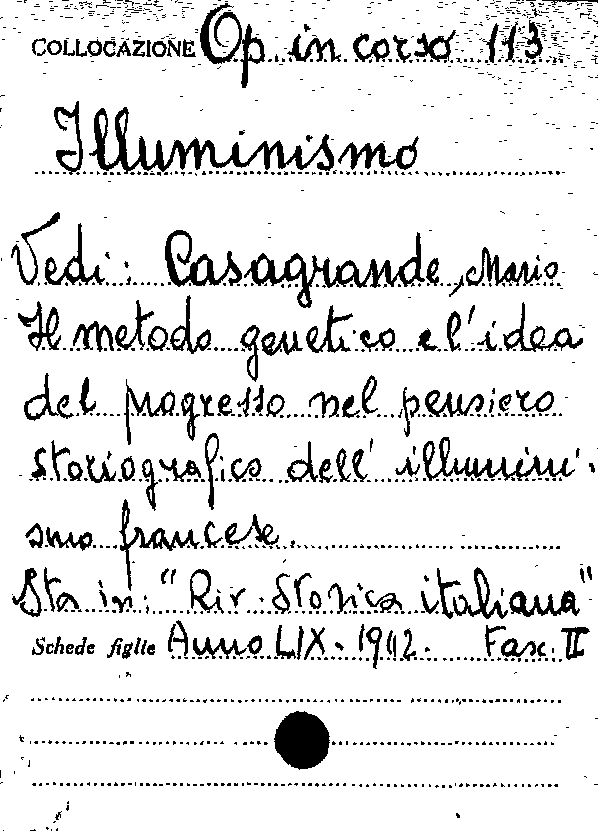 COLLOCAZIONE Op in corso 113
Illuminismo
Vedi: Casagrande, Mario
Il metodo genetico e l'idea
del progresso nel pensiero
storiografico dell' illumini-
smo francese.
Sta in: "Riv. Storica italiana"
Schede figlie Anno LIX - 1942. Fasc. II